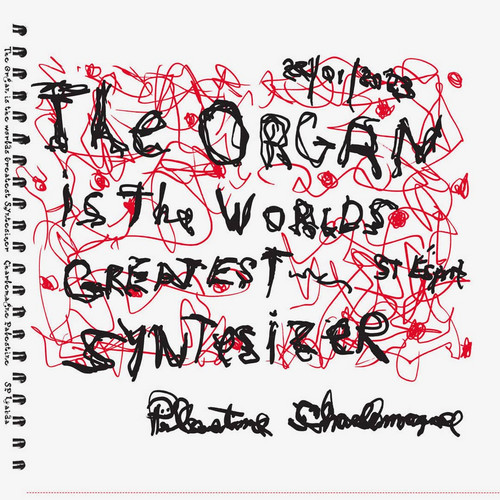 25/01/2023
The ORGAN
is The WORLDS
GREATEST
ST Esprit
SYNTESIZER
Palestine Charlemagne
The Organ is the worlds Greatest Syntesizer Charlemagne Palestine